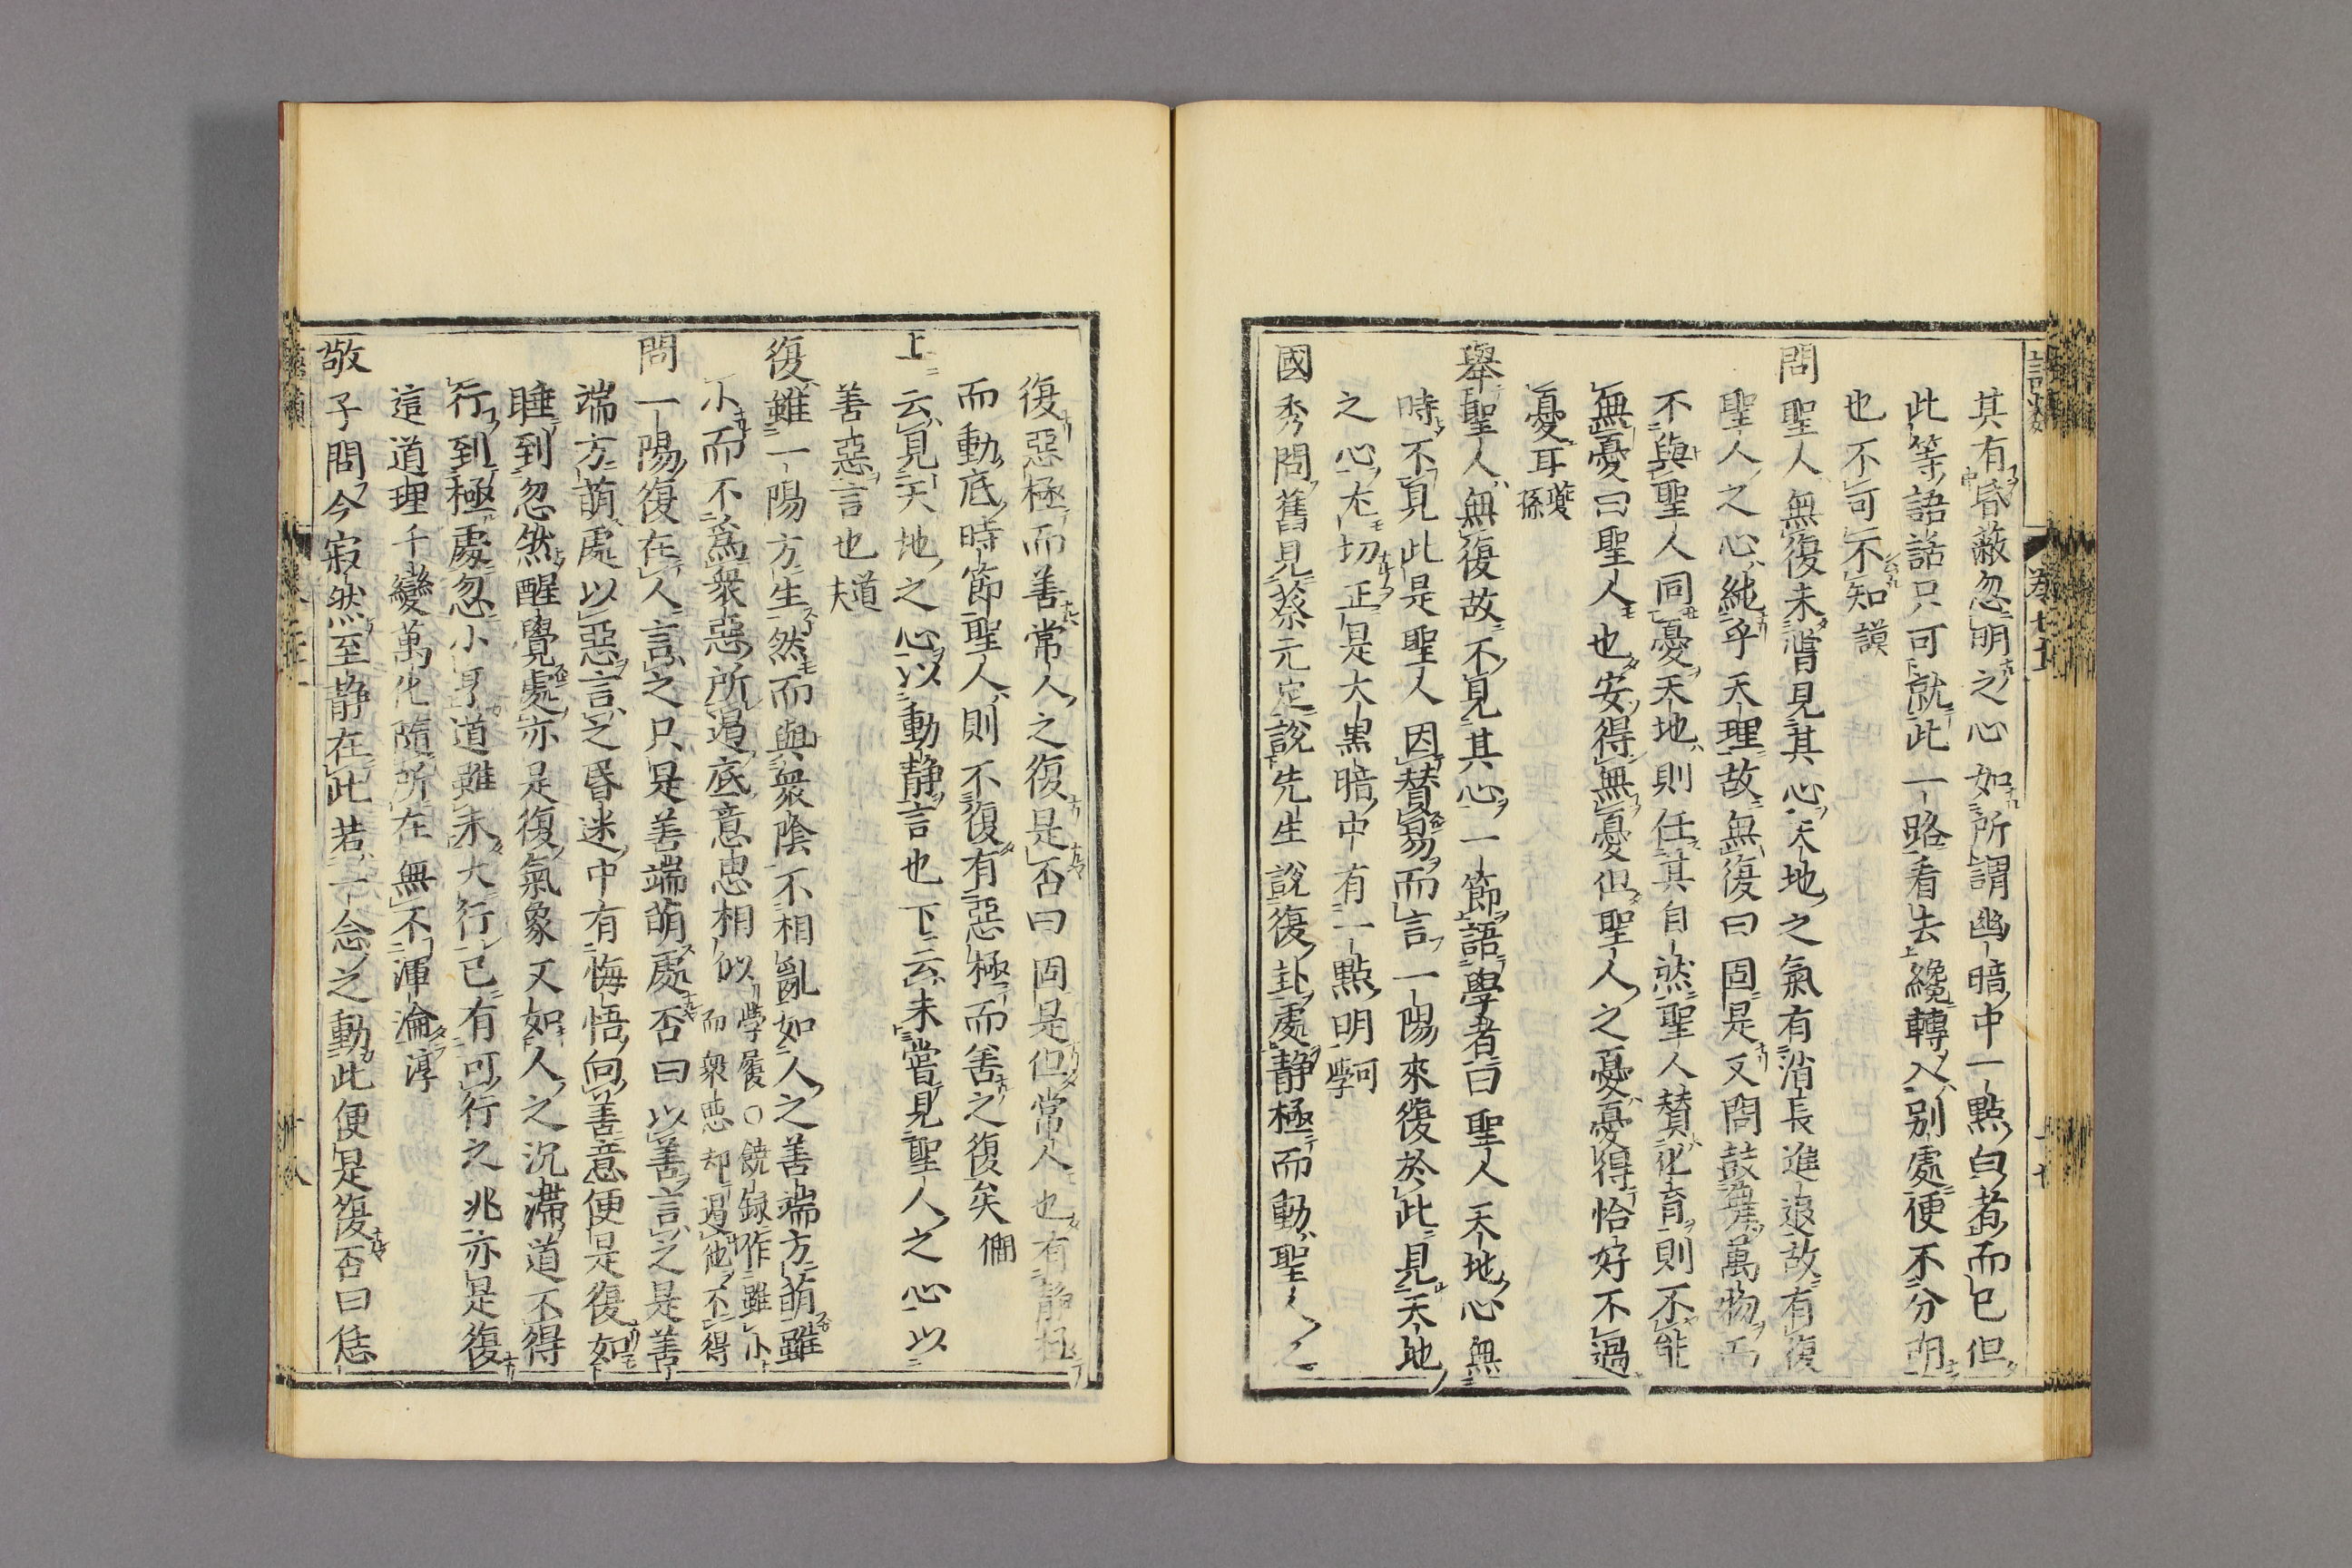 其有昏蔽忽明之心如所謂幽暗中一點白者而已但
此等語話只可就此一路看去纔轉入別處便不分明
也不可不知謨
問聖人無復未嘗見其心天地之氣有消長進退故有復
聖人之心純乎天理故無復曰固是又問鼓舞萬物而
不與聖人同憂天地則任其自然聖人贊化育則不能
無憂曰聖人也安得無憂但聖人之憂憂得恰好不過
憂耳夔孫
舉聖人無復故不見其心一節語學者曰聖人天地心無
時不見此是聖人因贊易而言一陽來復於此見天地
之心尤切正是大黑暗中有一點明可學
國秀問舊見蔡元定說先生說復卦處靜極而動聖人之
復惡極而善常人之復是否曰固是但常人也有靜極
而動底時節聖人則不復有惡極而善之復矣僩
上云見天地之心以動靜言也下云未嘗見聖人之心以
善惡言也道夫
復雖一陽方生然而與眾陰不相亂如人之善端方萌雖
小而不為眾惡所遏底意思相似學履○饒錄作雖小
而眾惡却遏他不得
問一陽復在人言之只是善端萌處否曰以善言之是善
端方萌處以惡言之昏迷中有悔悟向善意便是復如
睡到忽然醒覺處亦是復氣象又如人之沉滯道不得
行到極處忽小亨道雖未大行已有可行之兆亦是復
這道理千變萬化隨所在無不渾淪淳
敬子問今寂然至靜在此若一念之動此便是復否曰恁
語類
卷七十一